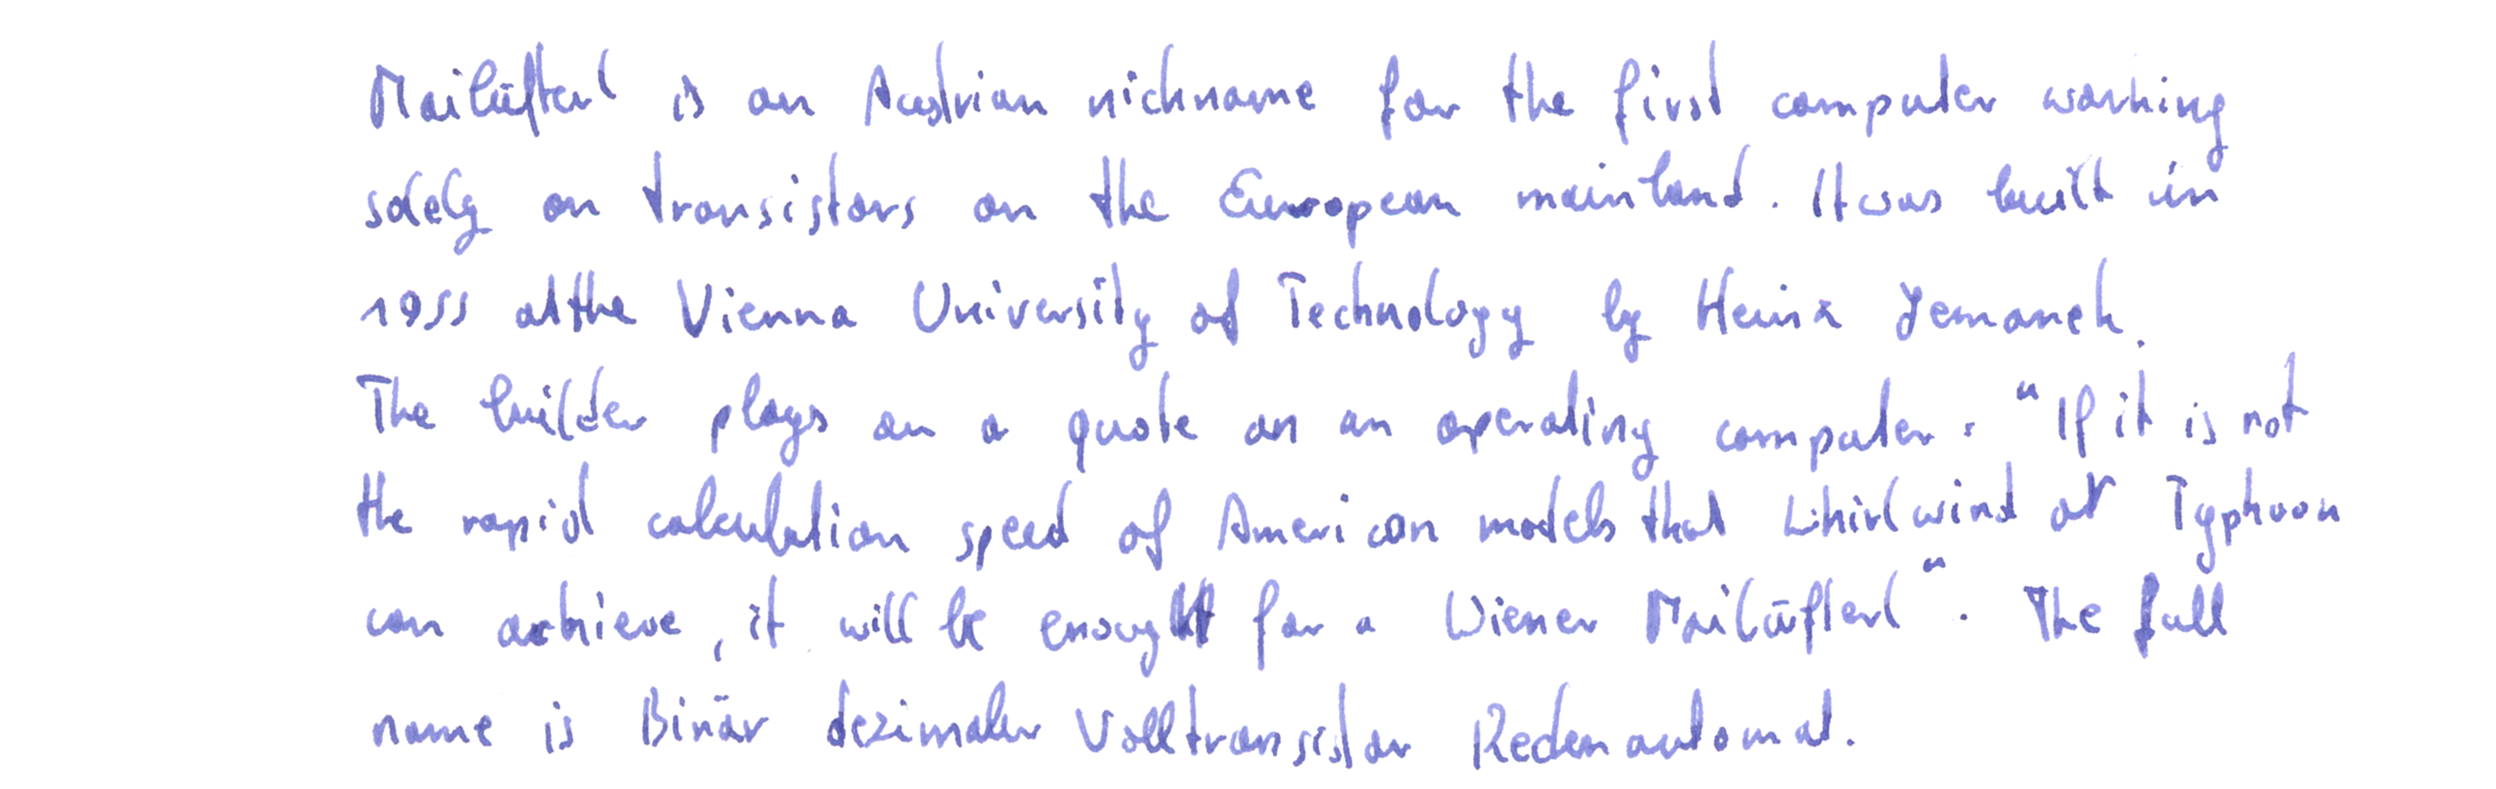 Mailüfterl is an Austrian nickname for the first computer working
solely on transistors on the European mainland. It was built in
1955 at the Vienna University of Technology by Heinz Zemanek.
The builder plays on a quote on an operating computer: "If it is not
the rapid calculation speed of American models that Whirlwind or Typhoon
can achieve, it will be enough for a Wiener Mailüfterl". The full
name is Binär dezimaler Volltransistor Rechenautomat.